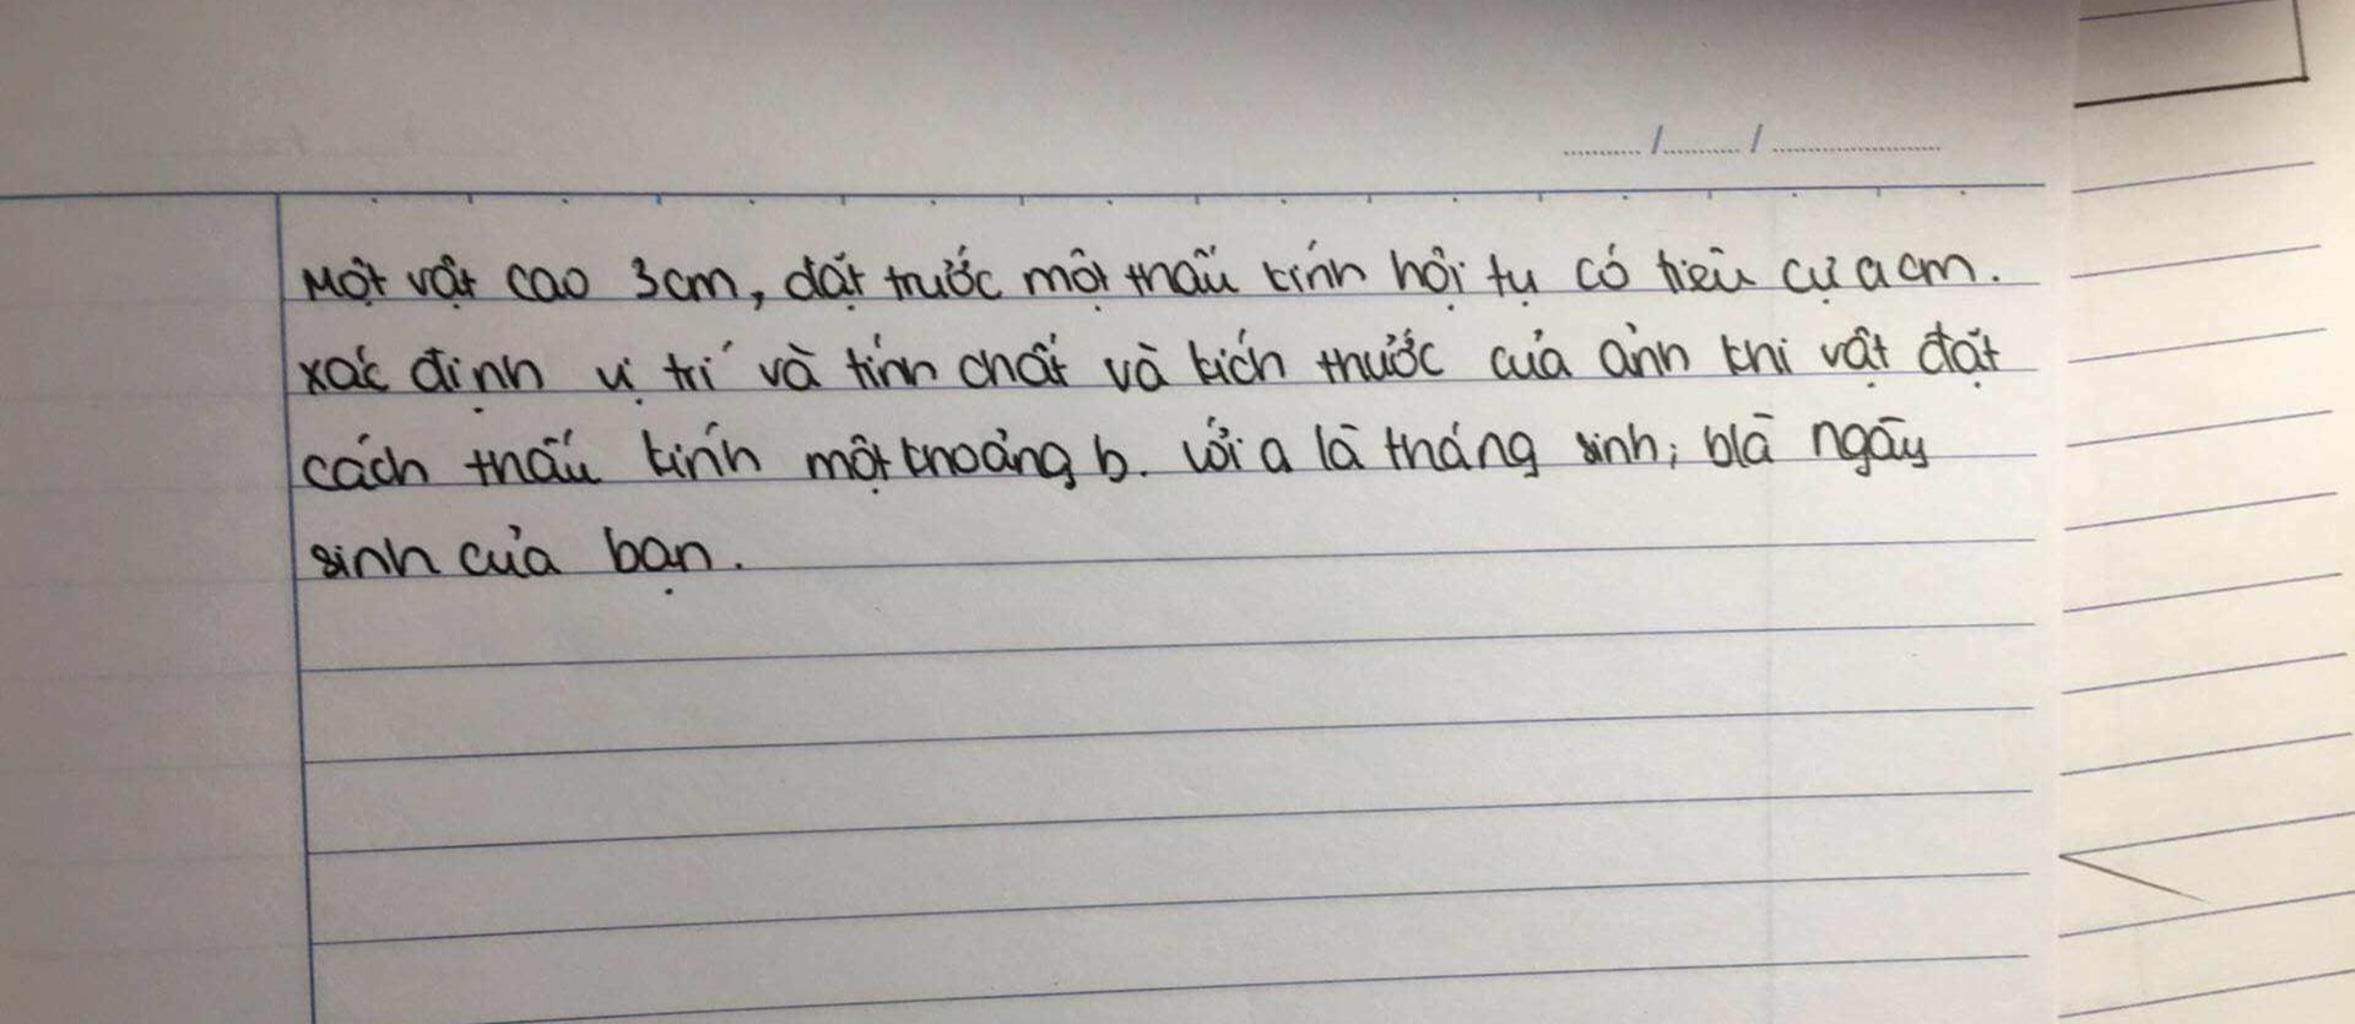 Một vật cao 3cm, đặt trước một thấu kính hội tụ có tiêu cự a cm.
xác định vị trí và tính chất và kích thước của ảnh khi vật đặt
cách thấu kính một khoảng b. Với a là tháng sinh; b là ngày
sinh của bạn.